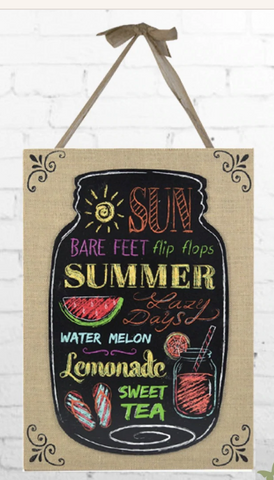 SUN
BARE FEET flip flops
SUMMER
Lazy
Days
WATER MELON
Lemonade
SWEET
TEA